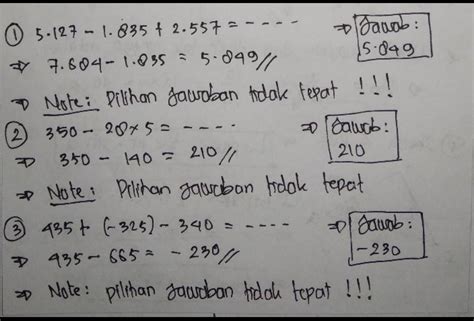 ① 5.127 - 1.835 + 2.557 = ---- ⇒ Jawab: 5.849
⇒ 7.684 - 1.835 = 5.849 //
⇒ Note: Pilihan Jawaban tidak tepat !!!
② 350 - 28 x 5 = ---- ⇒ Jawab: 210
⇒ 350 - 140 = 210 //
⇒ Note: Pilihan Jawaban tidak tepat
③ 435 + (-325) - 340 = ---- ⇒ Jawab: -230
⇒ 435 - 665 = -230 //
⇒ Note: pilihan Jawaban tidak tepat !!!